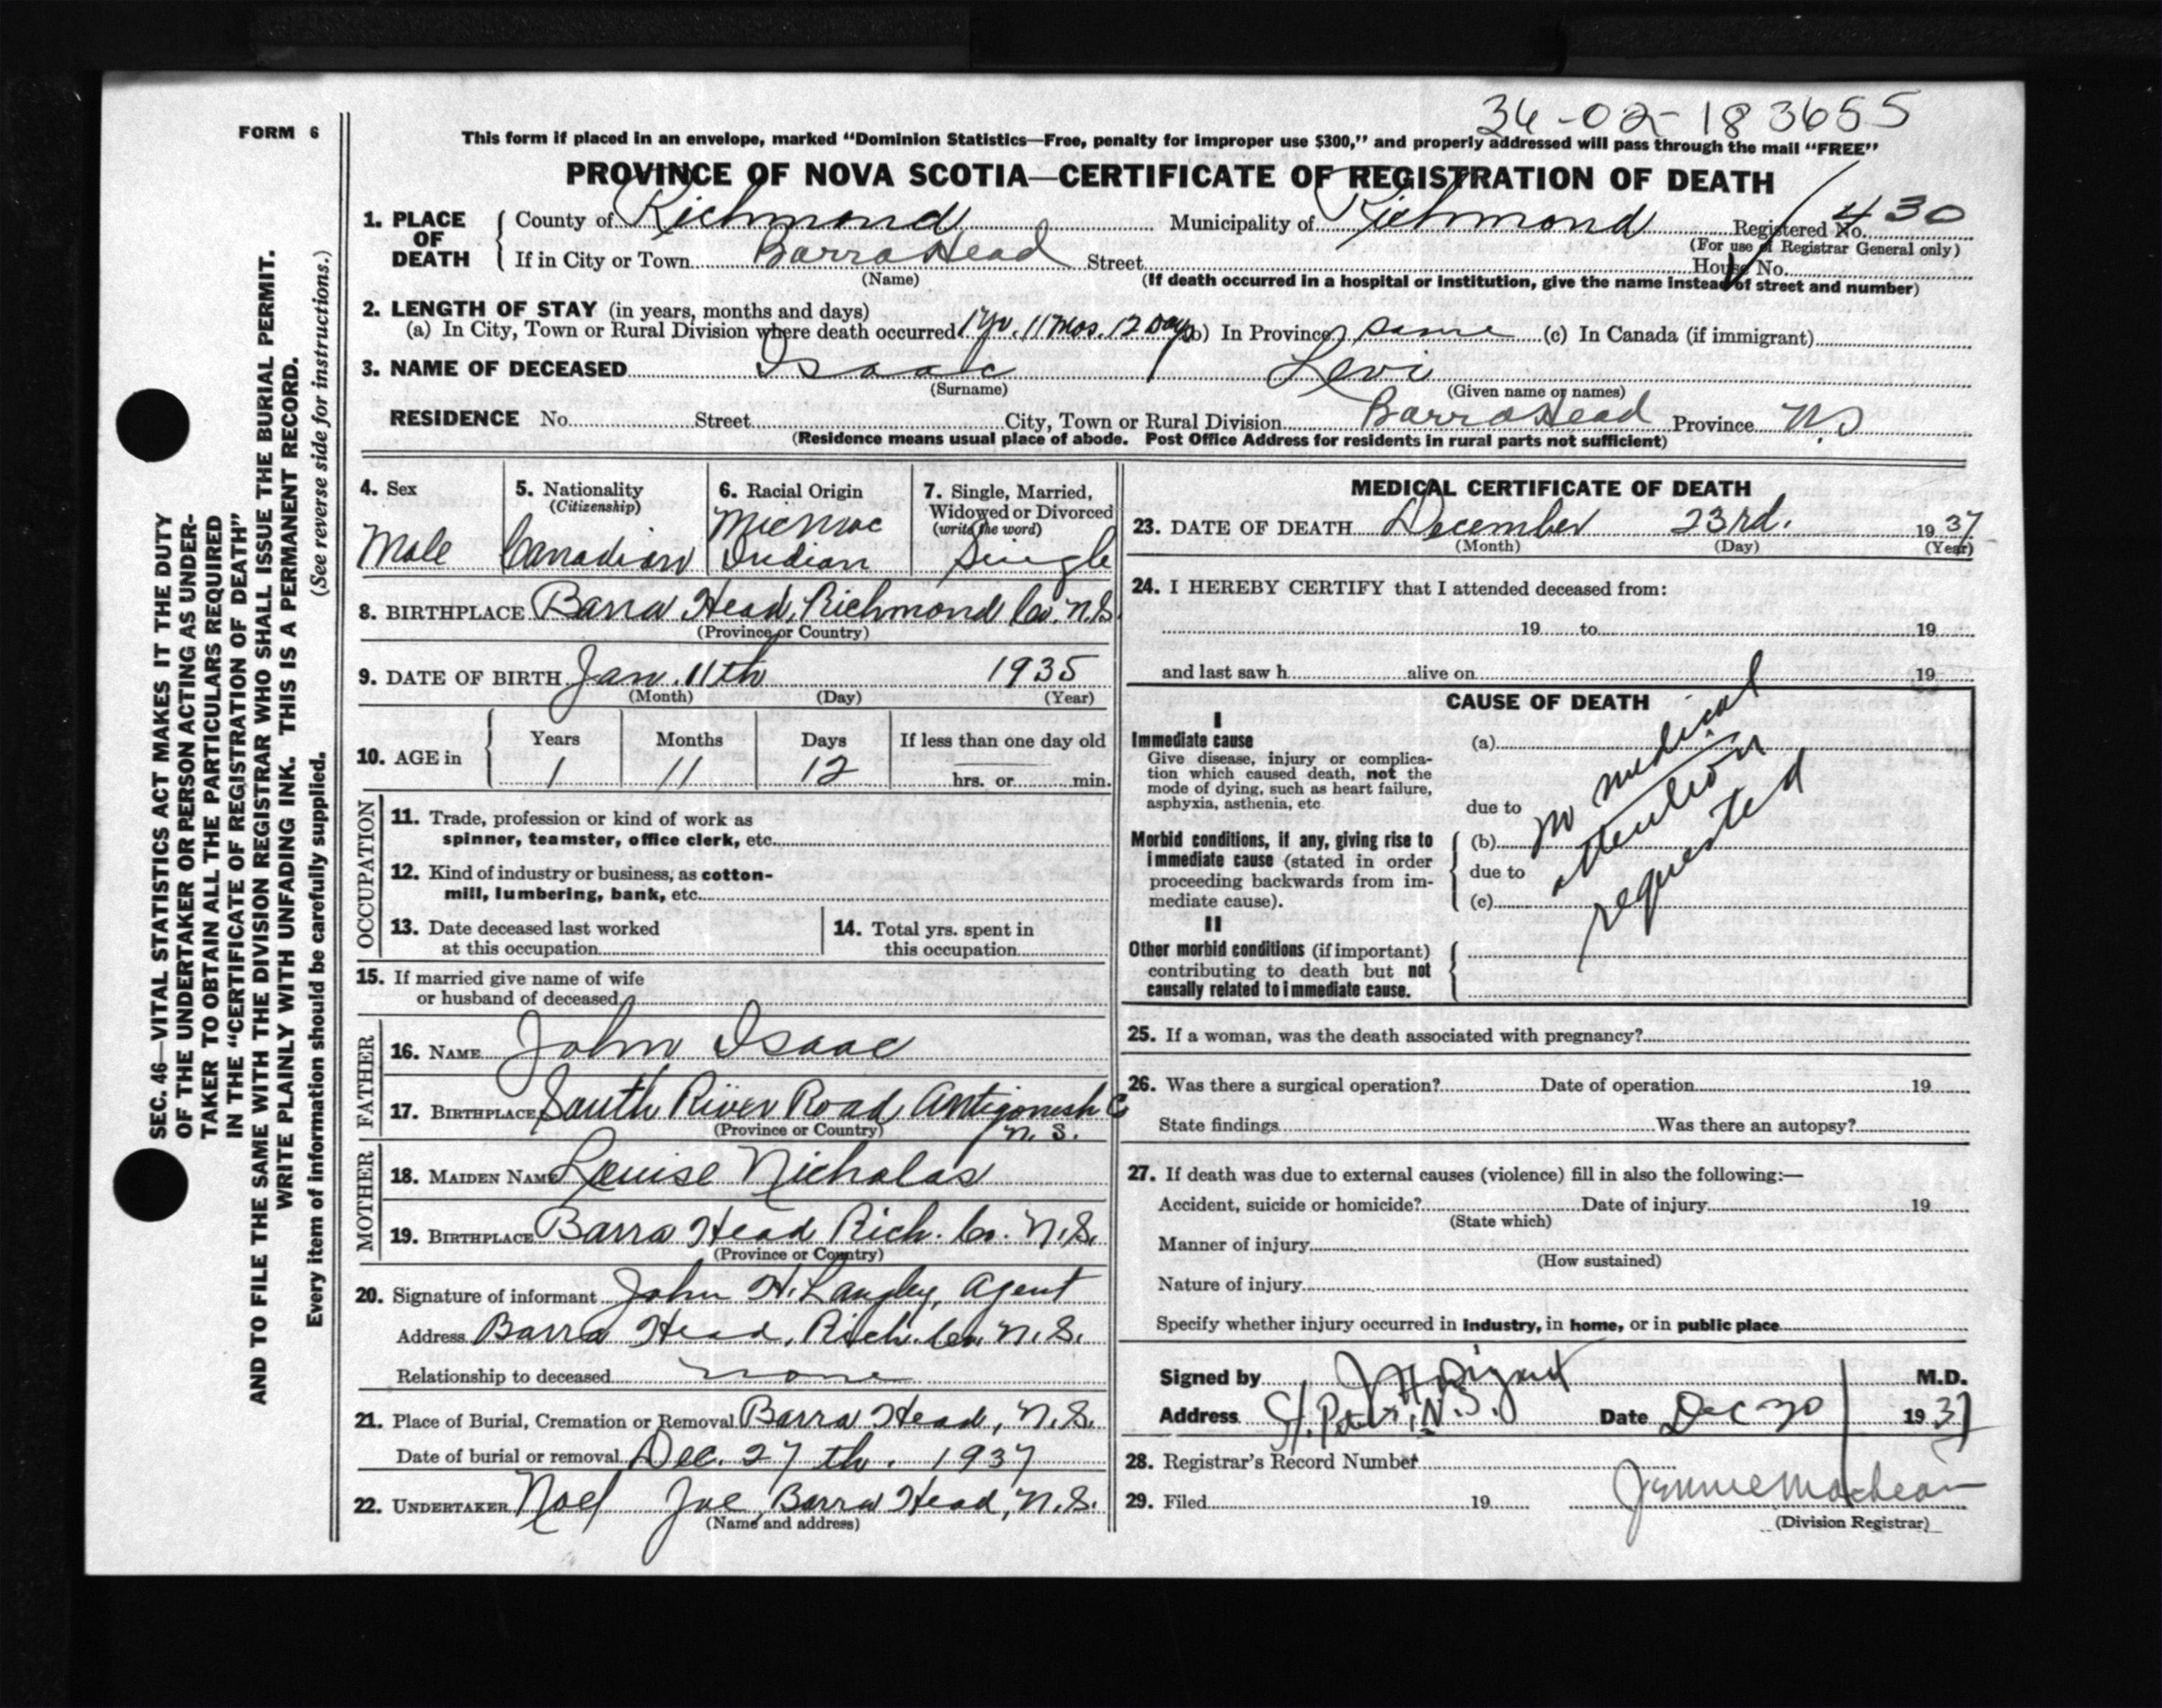 36-02-183655
FORM 6
This form if placed in an envelope, marked “Dominion Statistics—Free, penalty for improper use $300,” and properly addressed will pass through the mail “FREE”
PROVINCE OF NOVA SCOTIA—CERTIFICATE OF REGISTRATION OF DEATH
1. PLACE OF DEATH County of Richmond Municipality of Richmond Registered No. 430
(For use of Registrar General only)
If in City or Town Barra Head Street House No.
(Name) (If death occurred in a hospital or institution, give the name instead of street and number)
2. LENGTH OF STAY (in years, months and days)
(a) In City, Town or Rural Division where death occurred 1 yr. 11 mos. 12 days (b) In Province same (c) In Canada (if immigrant)
3. NAME OF DECEASED Isaac Levi
(Surname) (Given name or names)
RESIDENCE No. Street City, Town or Rural Division Barra Head Province N.S
(Residence means usual place of abode. Post Office Address for residents in rural parts not sufficient)
4. Sex Male
5. Nationality (Citizenship) Canadian
6. Racial Origin Micmac Indian
7. Single, Married, Widowed or Divorced (write the word) Single
8. BIRTHPLACE Barra Head, Richmond Co. N.S.
(Province or Country)
9. DATE OF BIRTH Jan. 11th 1935
(Month) (Day) (Year)
10. AGE in Years Months Days If less than one day old
1 11 12 hrs. or min.
OCCUPATION
11. Trade, profession or kind of work as
spinner, teamster, office clerk, etc.
12. Kind of industry or business, as cotton-
mill, lumbering, bank, etc.
13. Date deceased last worked
at this occupation
14. Total yrs. spent in
this occupation
15. If married give name of wife
or husband of deceased
FATHER
16. NAME John Isaac
17. BIRTHPLACE South River Road Antigonish C
(Province or Country) N.S.
MOTHER
18. MAIDEN NAME Louise Nicholas
19. BIRTHPLACE Barra Head Rich. Co. N.S.
(Province or Country)
20. Signature of informant John H. Langley, Agent
Address Barra Head, Rich. Co. N.S.
Relationship to deceased none
21. Place of Burial, Cremation or Removal Barra Head, N.S.
Date of burial or removal Dec. 27th. 1937
22. UNDERTAKER Noel Joe, Barra Head, N.S.
(Name and address)
MEDICAL CERTIFICATE OF DEATH
23. DATE OF DEATH December 23rd. 1937
(Month) (Day) (Year)
24. I HEREBY CERTIFY that I attended deceased from:
19 to 19
and last saw h alive on 19
CAUSE OF DEATH
I
Immediate cause
Give disease, injury or complica-
tion which caused death, not the
mode of dying, such as heart failure,
asphyxia, asthenia, etc
(a)
due to
Morbid conditions, if any, giving rise to
immediate cause (stated in order
proceeding backwards from im-
mediate cause).
(b)
due to
(c)
No medical
attention
requested
II
Other morbid conditions (if important)
contributing to death but not
causally related to immediate cause.
25. If a woman, was the death associated with pregnancy?
26. Was there a surgical operation? Date of operation 19
State findings Was there an autopsy?
27. If death was due to external causes (violence) fill in also the following:—
Accident, suicide or homicide? Date of injury 19
(State which)
Manner of injury
(How sustained)
Nature of injury
Specify whether injury occurred in industry, in home, or in public place
Signed by M.D.
Address St. Peter's, N.S. Date Dec 30 1937
28. Registrar's Record Number
29. Filed 19 Jennie MacLean
(Division Registrar)
SEC. 46—VITAL STATISTICS ACT MAKES IT THE DUTY
OF THE UNDERTAKER OR PERSON ACTING AS UNDER-
TAKER TO OBTAIN ALL THE PARTICULARS REQUIRED
IN THE “CERTIFICATE OF REGISTRATION OF DEATH”
AND TO FILE THE SAME WITH THE DIVISION REGISTRAR WHO SHALL ISSUE THE BURIAL PERMIT.
WRITE PLAINLY WITH UNFADING INK. THIS IS A PERMANENT RECORD.
Every item of information should be carefully supplied. (See reverse side for instructions.)